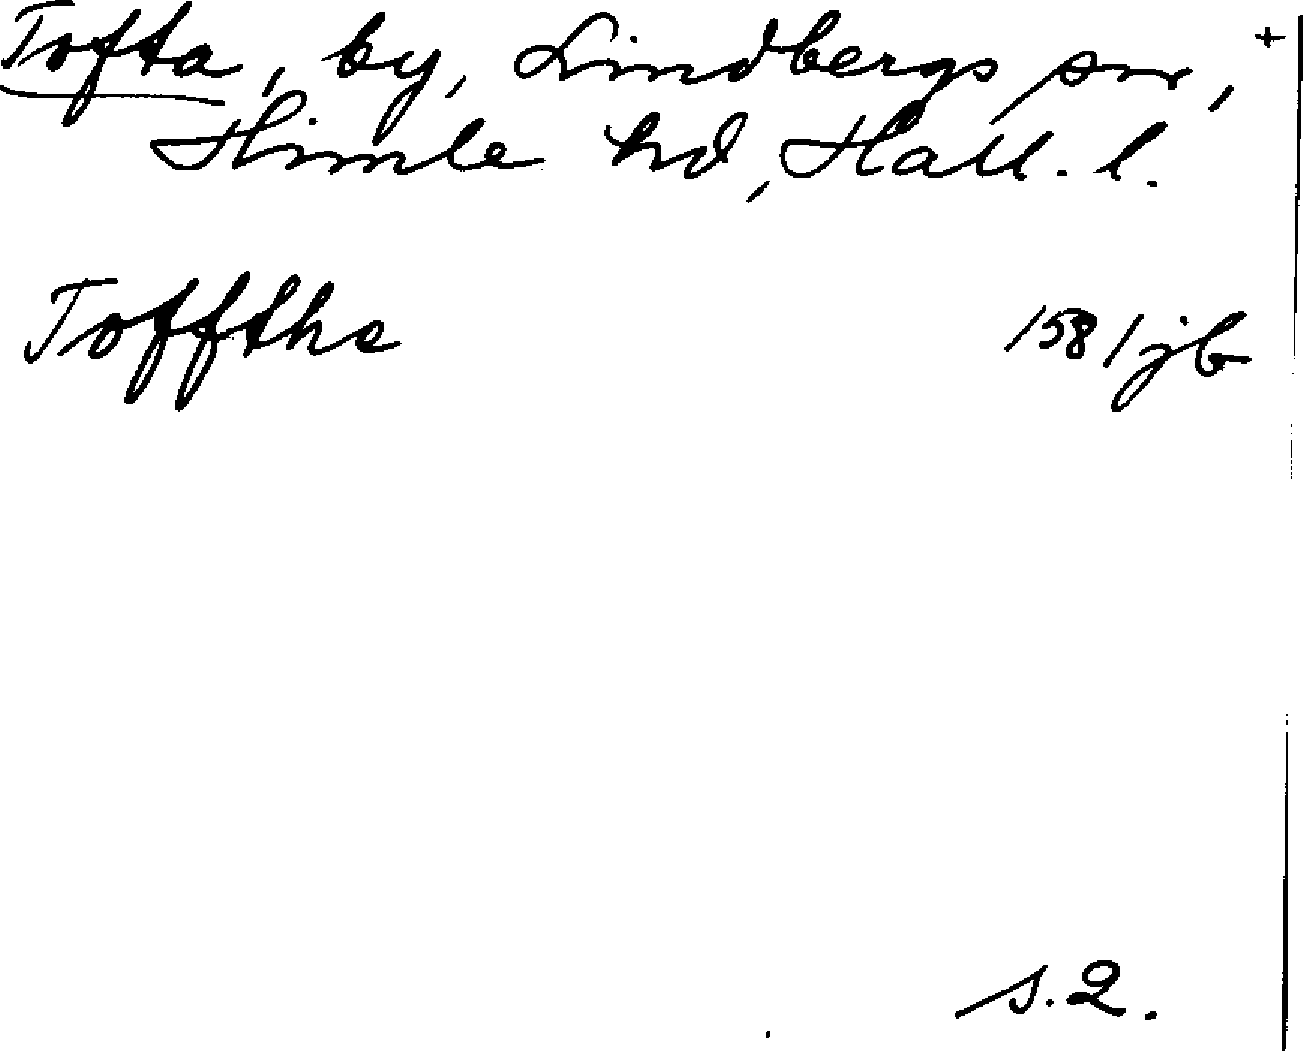 Tofta, by, Lindbergs sn, +
Himle hd, Hall. l.
Toffthe 1581 jb
s. 2.